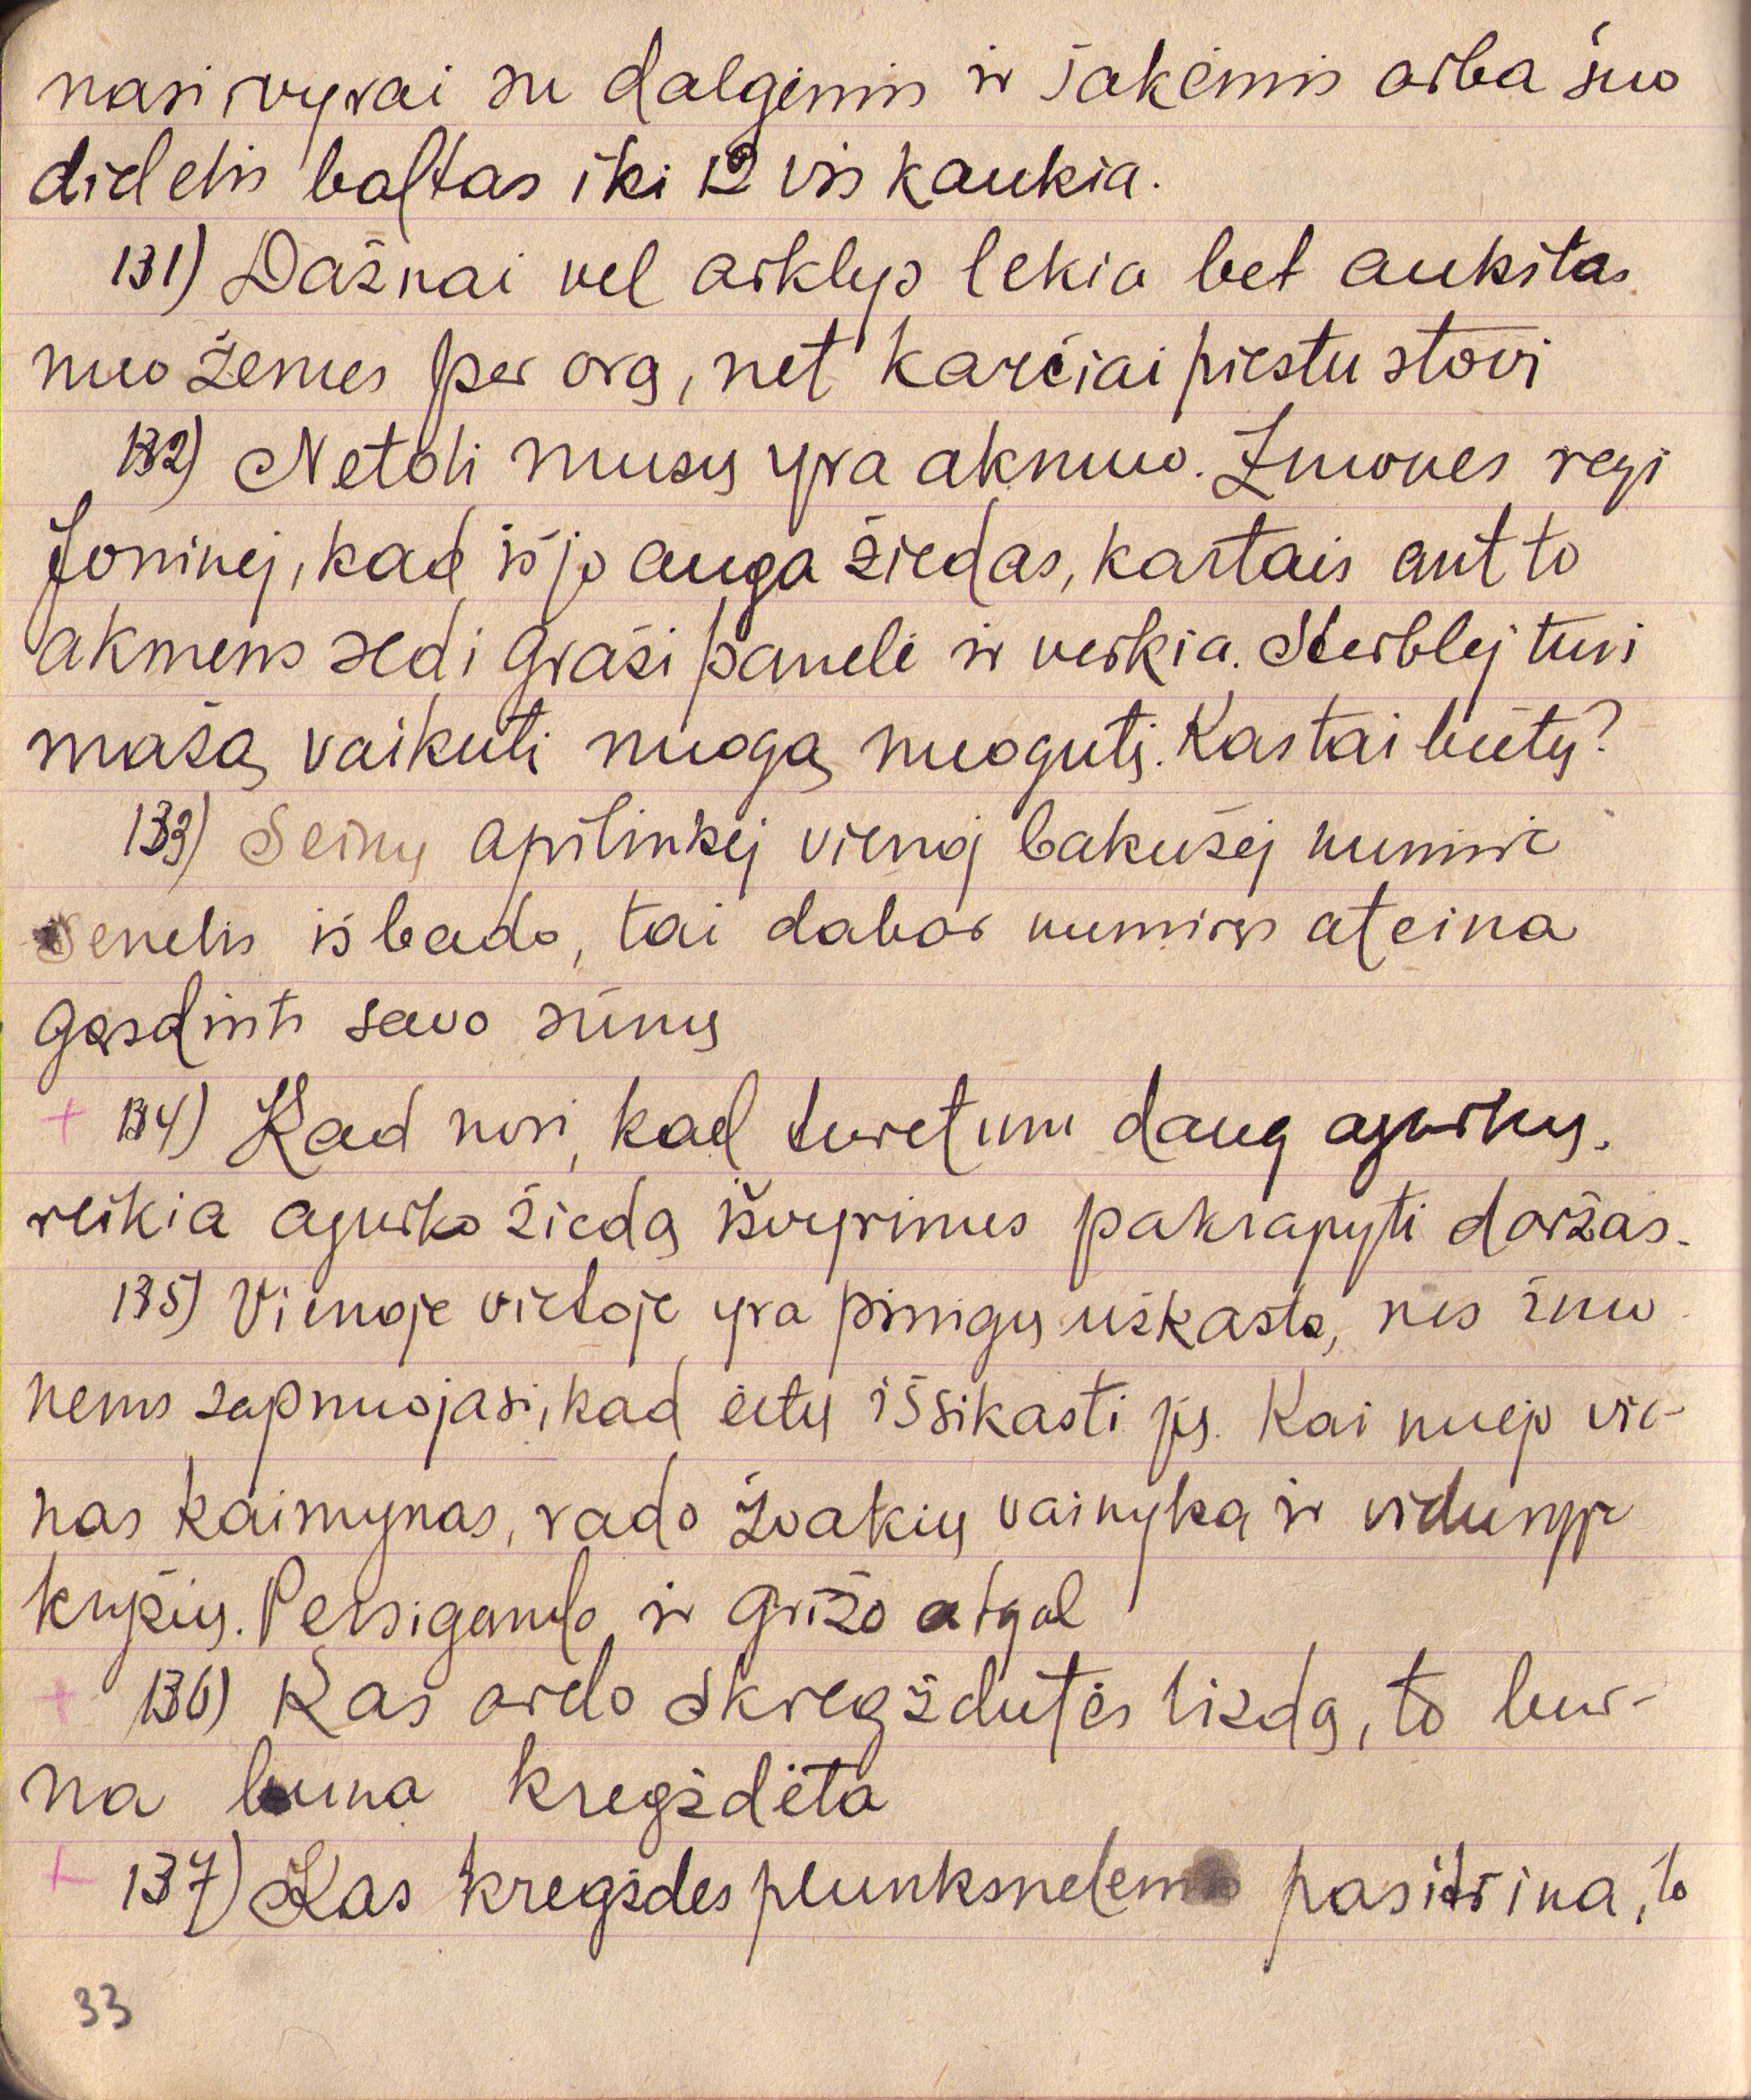 nasi, vyrai su dalgėmis ir šakėmis arba šuo
didelis baltas iki 12 vis kaukia.
131) Dažnai vėl arklys lekia bet aukštas
nuo žemės per orą, net karčiai piestu stovi
132) Netoli musų yra akmuo. Žmones regi
Joninėj, kad iš jo auga žiedas, kartais ant to
akmens sedi graži panelė ir verkia. Skerblėj turi
mažą vaikutį nuogą nuogutį. Kas tai būtų?
133) Seinų apilinkėj vienoj bakūžėj numirė
Senelis iš bado, tai dabar numiręs ateina
gąsdinti savo sūnų
+ 134) Kad nori, kad turetum daug agurkų.
reikia agurko žiedą išvyrimus pakrapyti daržas.
135) Vienoje vietoje yra pinigų užkasta, nes žmo
nems sapnuojasi, kad eitų išsikasti jų. Kai nuėjo vie-
nas kaimynas, rado žvakių vainyką ir viduryje
kryžių. Persigando ir grižo atgal
+ 136) Kas ardo skregždutės lizdą, to bur-
na buna kregždėta
+ 137) Kas kregždes plunksnelem pasitrina, to
33